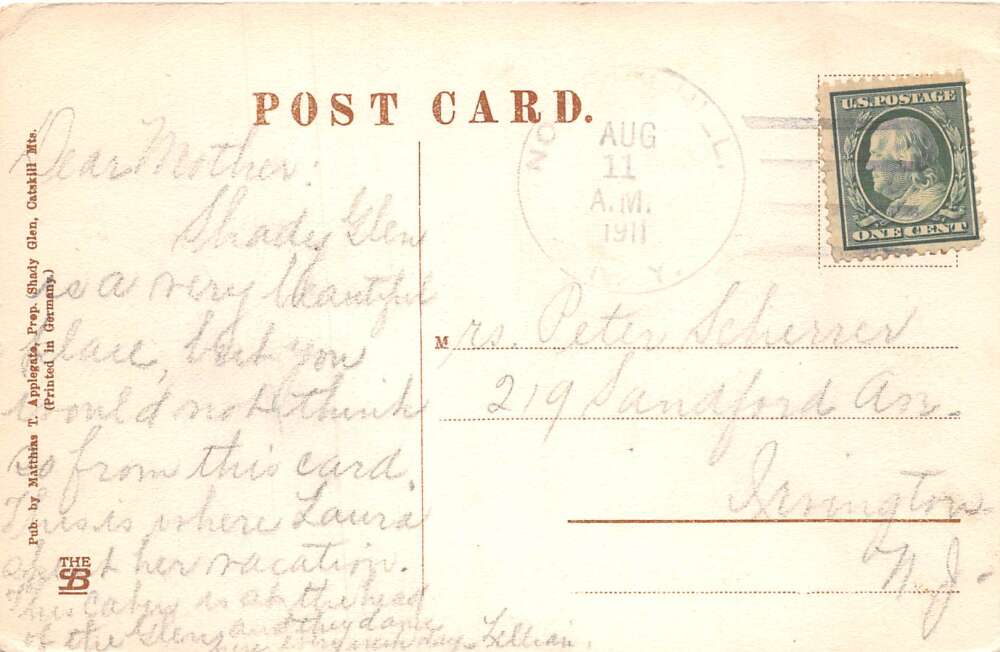 POST CARD.
U.S. POSTAGE
ONE CENT
NO
L.
AUG
11
A.M.
1911
N. Y.
Pub. by Matthias T. Applegate, Prop. (Shady Glen, Catskill Mts.
(Printed in Germany.)
THE
SB
Dear Mother:
Shady Glen
is a very beautiful
place, but you
would not think
so from this card.
This is where Laura
spent her vacation.
This is at the head
of the Glen and they dance
here every day. Lillian.
Mrs. Peter Scherrer
219 Sandford Av.
Irvington
N. J.